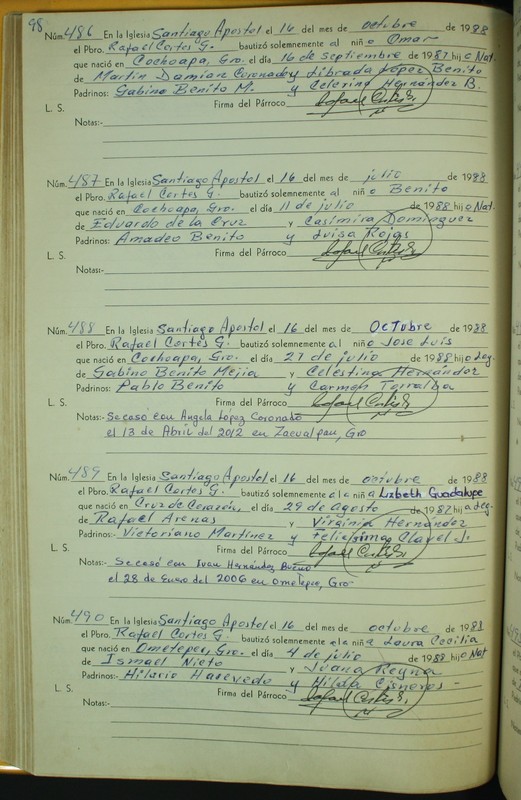 98
Núm. 486 En la Iglesia Santiago Apostol el 16 del mes de octubre de 1988
el Pbro. Rafael Cortes G. bautizó solemnemente al niño Omar
que nació en Cochoapa, Gro. el día 16 de septiembre de 1987 hijo Nat.
de Martin Damian Coronado y Librada López Benito
Padrinos: Gabino Benito M. y Celerina Hernández B.
L. S. Firma del Párroco
Notas:-
Núm. 487 En la Iglesia Santiago Apostol el 16 del mes de julio de 1988
el Pbro. Rafael Cortes G. bautizó solemnemente al niño Benito
que nació en Cochoapa, Gro. el día 11 de julio de 1988 hijo Nat.
de Eduardo de la Cruz y Casimira Dominguez
Padrinos: Amadeo Benito y Luisa Rojas
L. S. Firma del Párroco
Notas:-
Núm. 488 En la Iglesia Santiago Apostol el 16 del mes de OcTubre de 1988
el Pbro. Rafael Cortes G. bautizó solemnemente al niño Jose Luis
que nació en Cochoapa, Gro. el día 27 de julio de 1988 hijo Leg.
de Gabino Benito Mejia y Celestina Hernández
Padrinos: Pablo Benito y Carmen Torralba
L. S. Firma del Párroco
Notas:- Se casó con Angela López Coronado
el 13 de Abril del 2012 en Zacualpan, Gro
Núm. 489 En la Iglesia Santiago Apostol el 16 del mes de octubre de 1988
el Pbro. Rafael Cortes G. bautizó solemnemente a la niña Lizbeth Guadalupe
que nació en Cruz de el día 29 de Agosto de 1987 hija Leg.
de Rafael Arenas y Virginia Hernández
Padrinos:- Victoriano Martinez y Clavel J.
L. S. Firma del Párroco
Notas:- Se casó con Ivan Hernández Bueno
el 28 de Enero del 2006 en Ometepec, Gro
Núm. 490 En la Iglesia Santiago Apostol el 16 del mes de octubre de 1988
el Pbro. Rafael Cortes G. bautizó solemnemente a la niña Laura Cecilia
que nació en Ometepec, Gro. el día 4 de julio de 1988 hijo Nat
de Ismael Nieto y Juana Reyna
Padrinos:- Hilario y Hilda Cisneros
L. S. Firma del Párroco
Notas:-